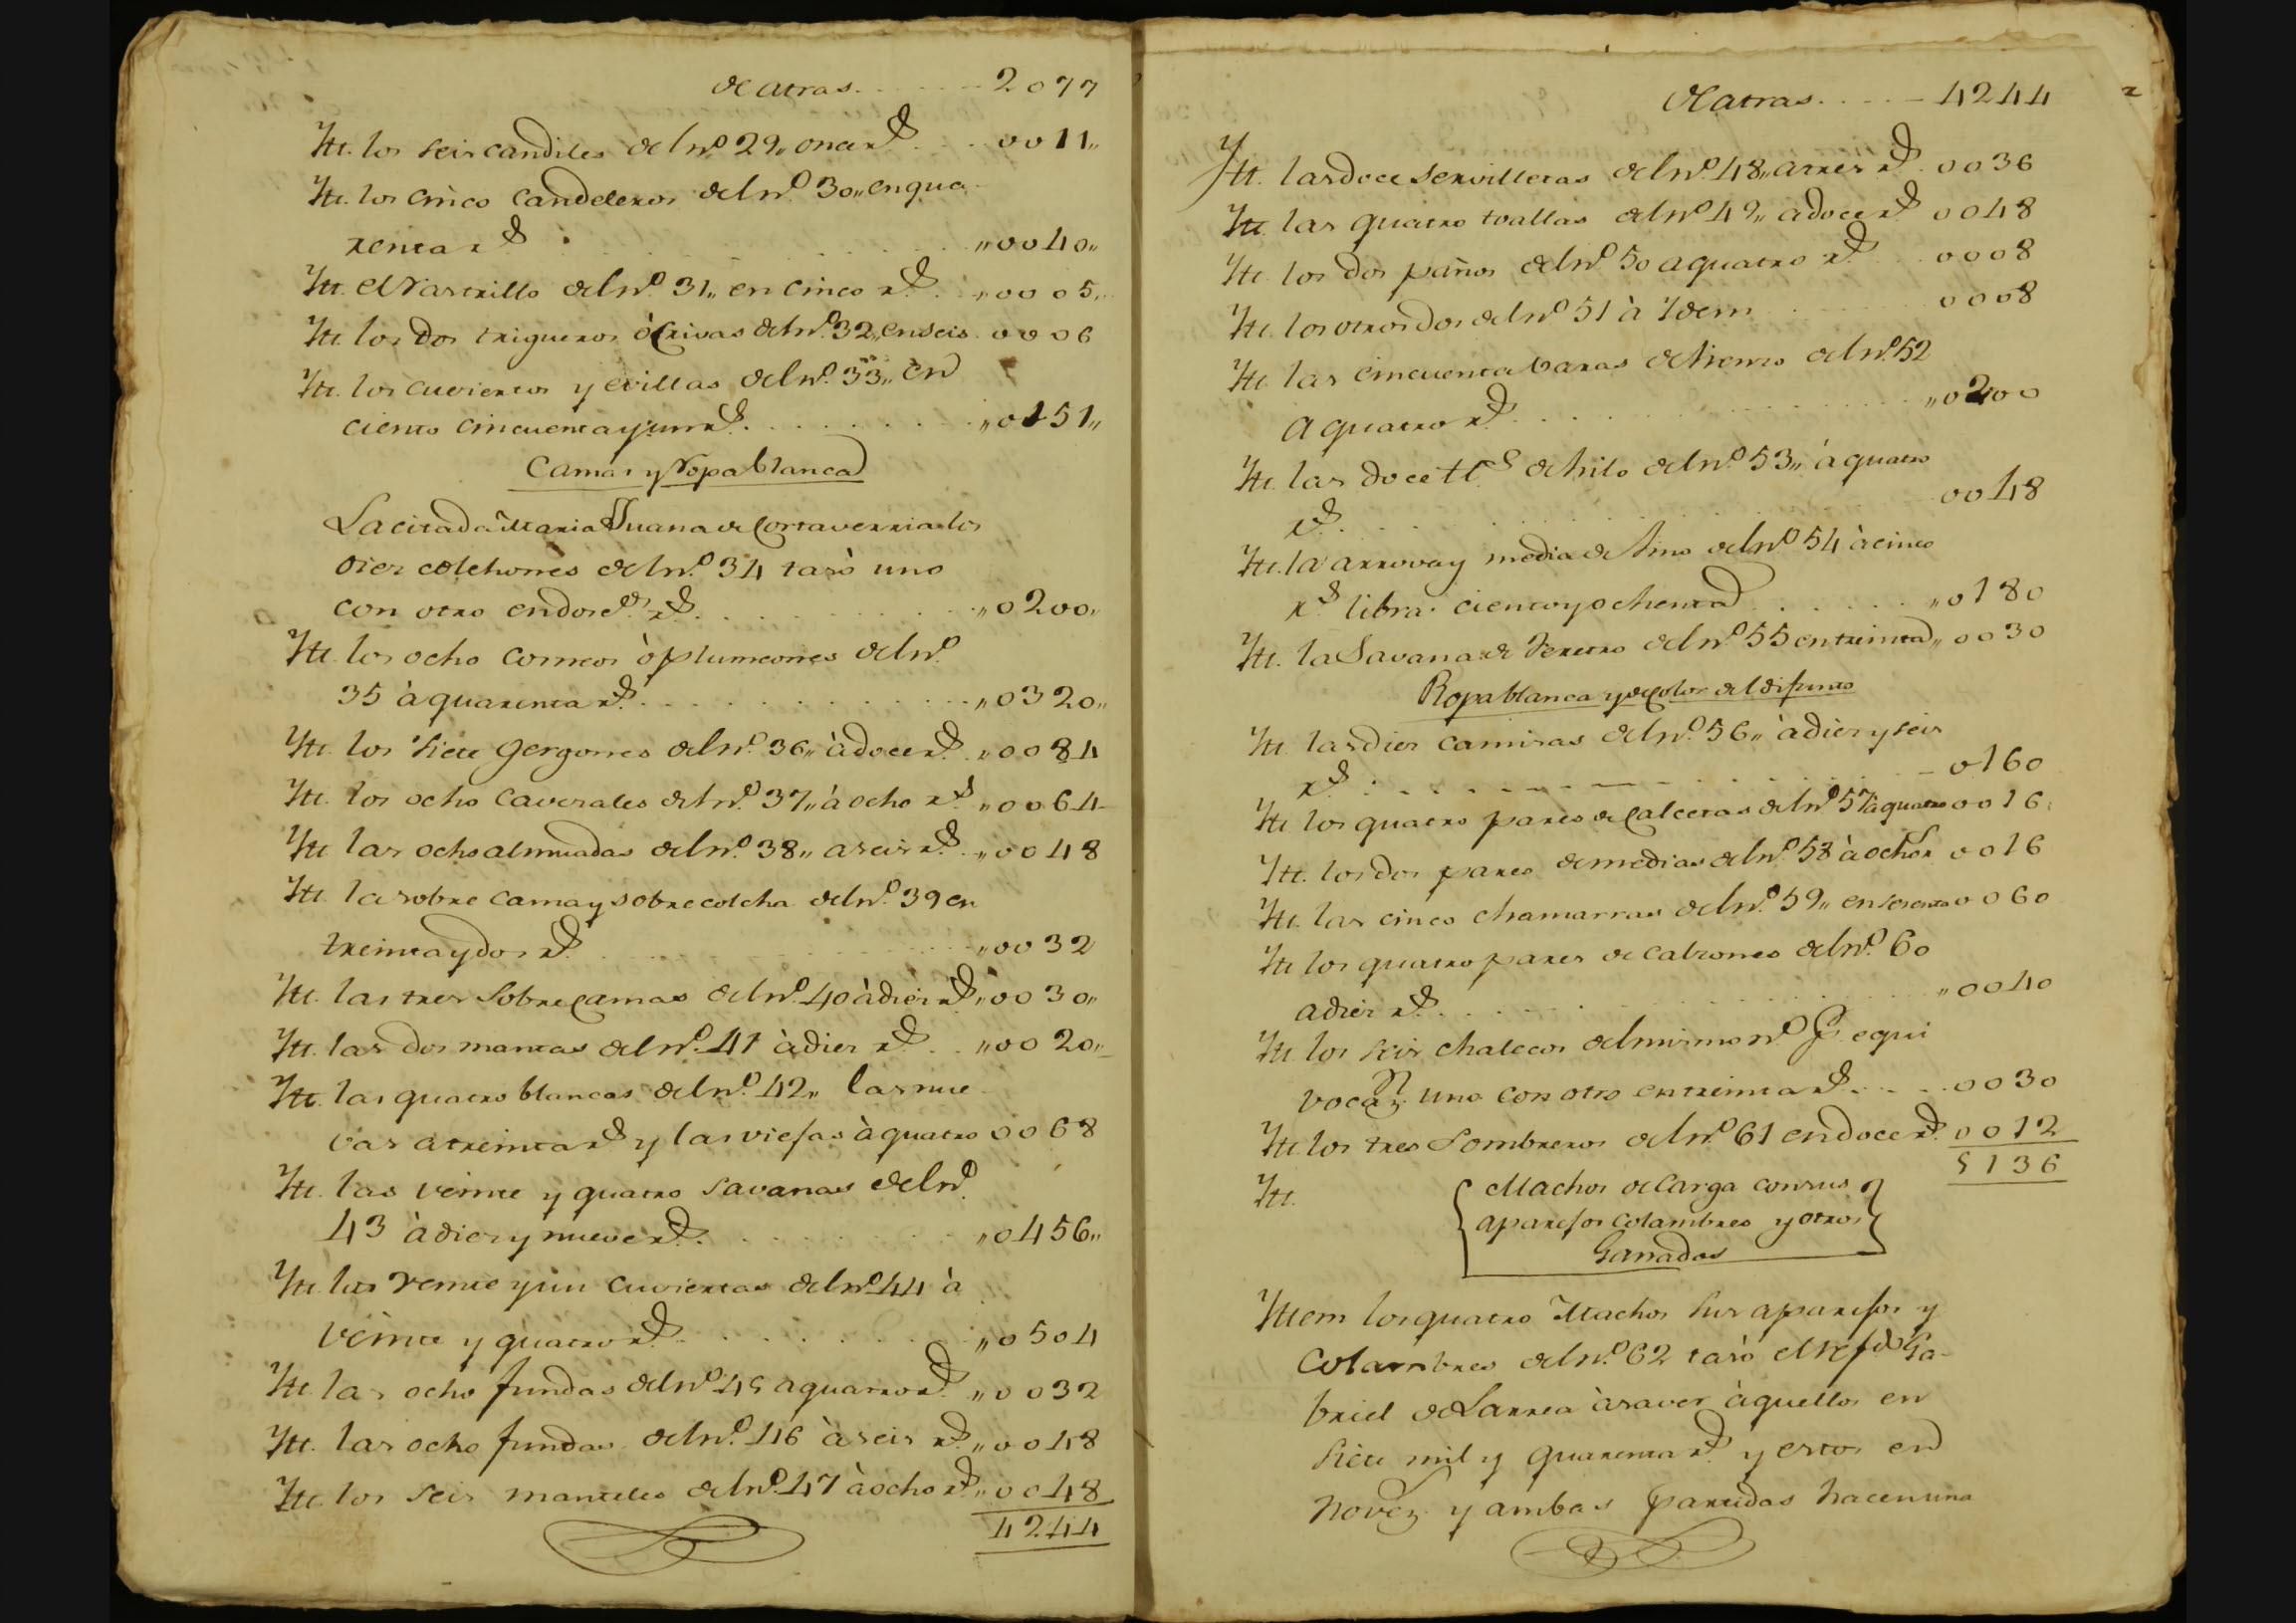 de atras. . . . . . 2077
Ytt. los seis candiles del nº 29,, once rs. . . . 0011,,
Ytt. los cinco candeleros del nº 30,, en qua-
renta rs . . . . ,,0040,,
Ytt. el rastrillo del nº 31,, en cinco rs. . . ,,0005,,
Ytt. los dos trigueros ò crivas del nº 32,, en seis. 0006
Ytt. los cuviertos y evillas del nº 33,, en
ciento cincuenta y un rs. . . . . ,,0151,,
Camas y Ropa blanca
La citada Maria Juana de Cortaverria los
diez colchones del nº 34 tasò uno
con otro en dosctos rs. . . . . ,,0200,,
Ytt. los ocho comeos ò plumeones del nº
35 à quarenta rs. . . . . ,,0320,,
Ytt. los siete gergones del nº 36,, à doce rs. ,,0084
Ytt. los ocho cavezales del nº 37,, à ocho rs. ,,0064
Ytt. las ocho almuadas del nº 38,, a seis rs. ,,0048
Ytt. la sobre cama y sobrecolcha del nº 39 en
treinta y dos rs. . . . . ,,0032
Ytt. las tres sobrecamas del nº 40 à diez rs. ,,0030,,
Ytt. las dos mantas del nº 41 à diez rs. . . ,,0020,,
Ytt. las quatro blancas del nº 42,, las nue-
vas a treinta rs y las viejas à quatro 0068
Ytt. las veinte y quatro savanas del nº
43 à diez y nueve rs. . . . . ,,0456,,
Ytt. las veinte y un cuviertas del nº 44 à
veinte y quatro rs. . . . . ,,0504
Ytt. las ocho fundas del nº 45 a quatro rs. ,,0032
Ytt. las ocho fundas del nº 46 à seis rs. ,,0048
Ytt. los seis manteles del nº 47 à ocho rs. ,,0048
4244
de atras. . . . . 4244
2
Ytt. las doce servilletas del nº 48,, a tres rs. 0036
Ytt. las quatro toallas del nº 49,, a doce rs. 0048
Ytt. los dos paños del nº 50 a quatro rs. . . 0008
Ytt. los otros dos del nº 51 à Ydem . . . . 0008
Ytt. las cincuenta varas de lienzo del nº 52
a quatro rs. . . . . ,,0200
Ytt. las doce tt.s de hilo del nº 53,, à quatro
rs. . . . . 0048
Ytt. la arrova y media de lino del nº 54 à cinco
rs libra: ciento y ochenta . . . . ,,0180
Ytt. la Savana de Feretro del nº 55 en treinta ,,0030
Ropa blanca y de color del difunto
Ytt. las diez camisas del nº 56,, à diez y seis
rs. . . . . 0160
Ytt. los quatro pares de calcetas del nº 57 à quatro 0016
Ytt. los dos pares de medias del nº 58 à ocho r 0016
Ytt. las cinco chamarras del nº 59,, en sesenta 0060
Ytt. los quatro pares de calzones del nº 60
a diez rs. . . . . ,,0040
Ytt. los seis chalecos del mismo nº Pr. equi
vocaz.n uno con otro en treinta rs. . . . 0030
Ytt. los tres sombreros del nº 61 en doce rs. 0012
5136
Ytt. Machos de Carga con sus
aparejos colambres y otros
Ganados
Yttem los quatro Machos sus aparejos y
colambres del nº 62 tasò el refdo Ga-
briel de Larrea à saver à quellos en
siete mil y quarenta rs. y estos en
y ambas partidas hacen una